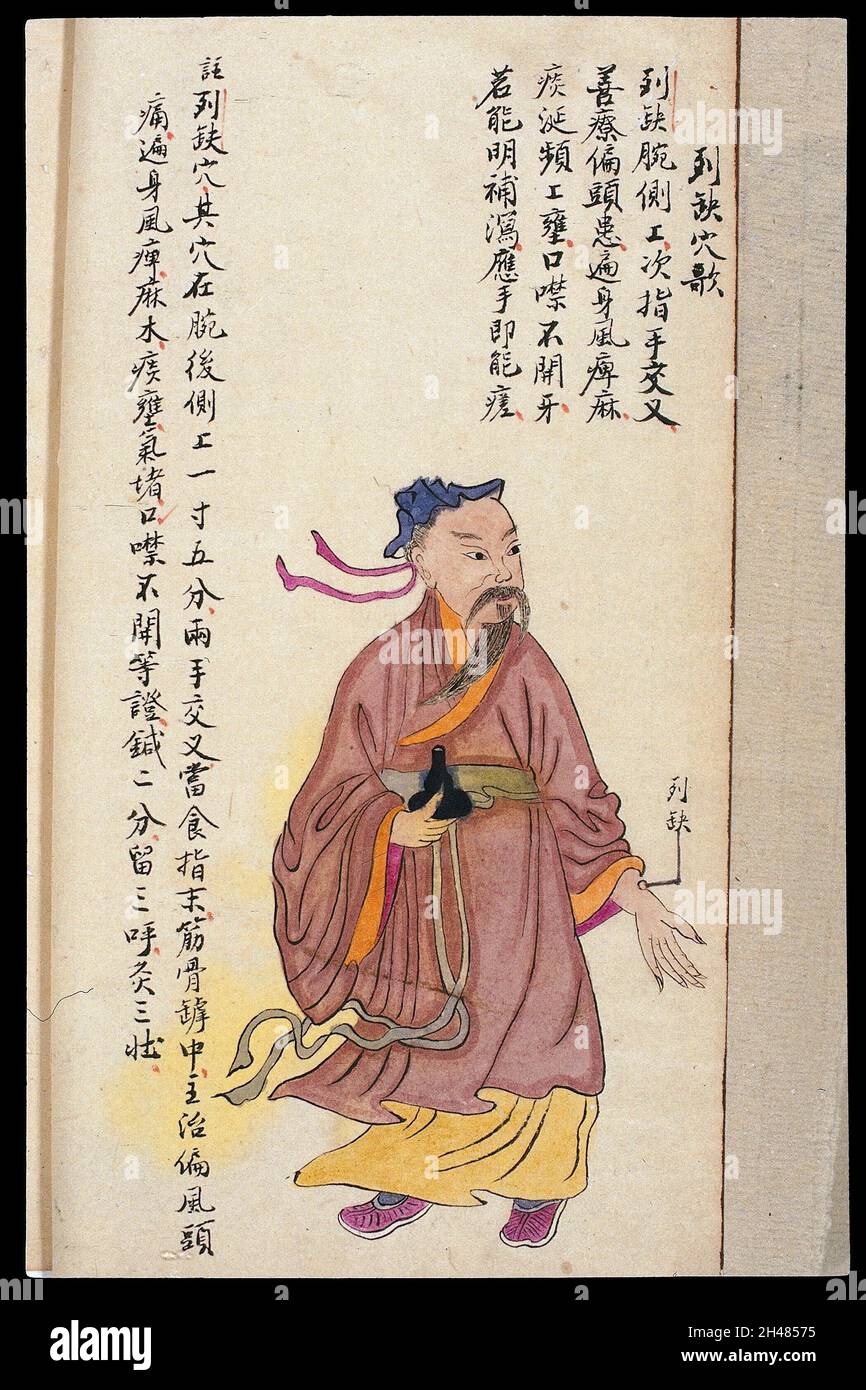 列缺穴歌
列缺腕側上次指手交叉
善療偏頭患遍身風痺麻
痰涎頻上壅口噤不開牙
若能明補瀉應手即能瘥
列缺
註列缺穴其穴在腕後側上一寸五分兩手交叉當食指末筋骨罅中主治偏風頭
痛遍身風痺麻木痰壅氣堵口噤不開等證鍼二分留三呼灸三壯
alamy
Image ID: 2H48575
www.alamy.com